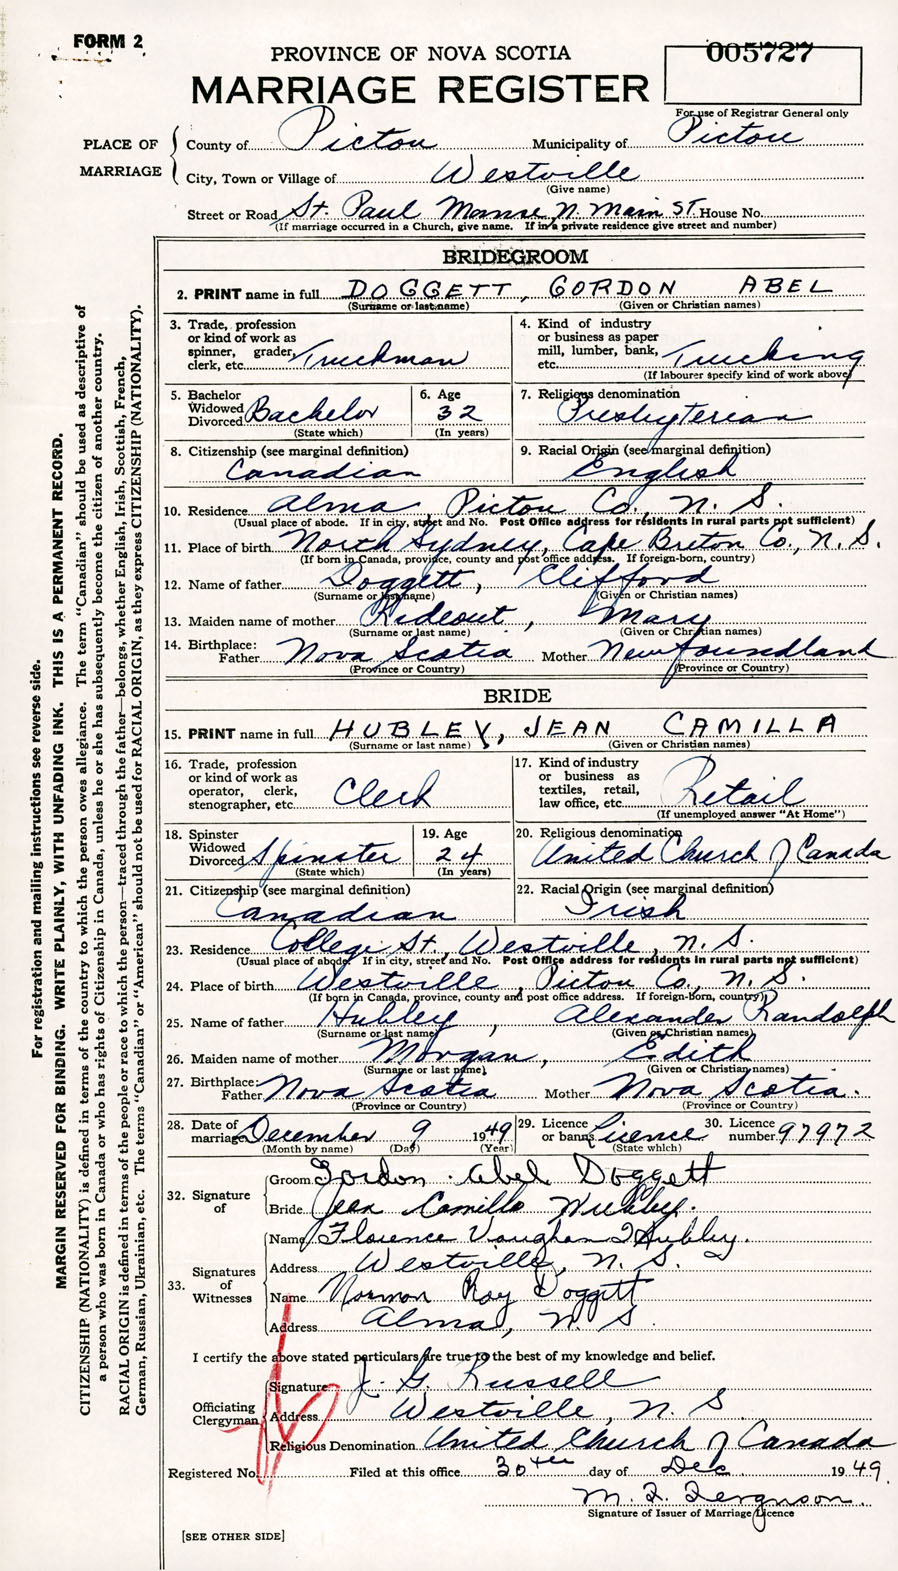 FORM 2
PROVINCE OF NOVA SCOTIA
005727
MARRIAGE REGISTER
For use of Registrar General only
PLACE OF MARRIAGE
County of Pictou Municipality of Pictou
City, Town or Village of Westville
(Give name)
Street or Road St. Paul Manse N. Main ST. House No.
(If marriage occurred in a Church, give name. If in a private residence give street and number)
BRIDEGROOM
2. PRINT name in full DOGGETT, GORDON ABEL
(Surname or last name) (Given or Christian names)
3. Trade, profession or kind of work as spinner, grader, clerk, etc. Truckman
4. Kind of industry or business as paper mill, lumber, bank, etc. Trucking
(If labourer specify kind of work above)
5. Bachelor Widowed Divorced Bachelor
(State which)
6. Age 32
(In years)
7. Religious denomination
Presbyterean
8. Citizenship (see marginal definition)
Canadian
9. Racial Origin (see marginal definition)
English
10. Residence Alma Pictou Co., N. S.
(Usual place of abode. If in city, street and No. Post Office address for residents in rural parts not sufficient)
11. Place of birth North Sydney, Cape Breton Co., N. S.
(If born in Canada, province, county and post office address. If foreign-born, country)
12. Name of father Doggett, Clifford
(Surname or last name) (Given or Christian names)
13. Maiden name of mother Rideout, Mary
(Surname or last name) (Given or Christian names)
14. Birthplace:
Father Nova Scotia Mother Newfoundland
(Province or Country) (Province or Country)
BRIDE
15. PRINT name in full HUBLEY, JEAN CAMILLA
(Surname or last name) (Given or Christian names)
16. Trade, profession or kind of work as operator, clerk, stenographer, etc. Clerk
17. Kind of industry or business as textiles, retail, law office, etc. Retail
(If unemployed answer "At Home")
18. Spinster Widowed Divorced Spinster
(State which)
19. Age 24
(In years)
20. Religious denomination
United Church of Canada
21. Citizenship (see marginal definition)
Canadian
22. Racial Origin (see marginal definition)
Irish
23. Residence College St., Westville, N. S.
(Usual place of abode. If in city, street and No. Post Office address for residents in rural parts not sufficient)
24. Place of birth Westville, Pictou Co., N. S.
(If born in Canada, province, county and post office address. If foreign-born, country)
25. Name of father Hubley, Alexander Randolph
(Surname or last name) (Given or Christian names)
26. Maiden name of mother Morgan, Edith
(Surname or last name) (Given or Christian names)
27. Birthplace:
Father Nova Scotia Mother Nova Scotia.
(Province or Country) (Province or Country)
28. Date of marriage December 9 1949
(Month by name) (Day) (Year)
29. Licence or banns Licence
(State which)
30. Licence number 97972
32. Signature of
Groom Gordon Abel Doggett
Bride Jean Camilla Hubley.
33. Signatures of Witnesses
Name Florence Vaughan Hubley.
Address Westville, N. S.
Name Norman Roy Doggett
Address Alma, N. S
I certify the above stated particulars are true to the best of my knowledge and belief.
Officiating Clergyman
Signature J. G. Russell
Address Westville, N. S
Religious Denomination United Church of Canada
Registered No. Filed at this office 30th day of Dec 1949.
M. F. Ferguson.
Signature of Issuer of Marriage Licence
[SEE OTHER SIDE]
For registration and mailing instructions see reverse side.
MARGIN RESERVED FOR BINDING. WRITE PLAINLY, WITH UNFADING INK. THIS IS A PERMANENT RECORD.
CITIZENSHIP (NATIONALITY) is defined in terms of the country to which the person owes allegiance. The term "Canadian" should be used as descriptive of
a person who was born in Canada or who has rights of Citizenship in Canada, unless he or she has subsequently become the citizen of another country.
RACIAL ORIGIN is defined in terms of the people or race to which the person—traced through the father—belongs, whether English, Irish, Scottish, French,
German, Russian, Ukrainian, etc. The terms "Canadian" or "American" should not be used for RACIAL ORIGIN, as they express CITIZENSHIP (NATIONALITY).